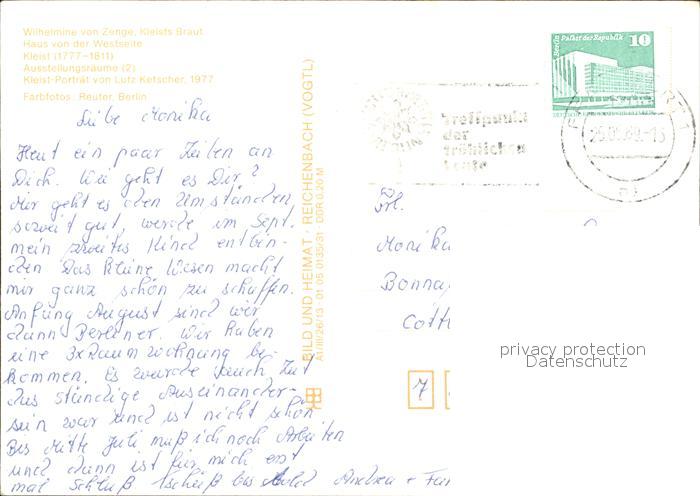 Wilhelmine von Zenge, Kleists Braut
Haus von der Westseite
Kleist (1777–1811)
Ausstellungsräume (2)
Kleist-Porträt von Lutz Ketscher, 1977
Farbfotos: Reuter, Berlin
Liebe Monika
Heut ein paar Zeilen an
Dich. Wie geht es Dir?
Mir geht es den Umständen
soweit gut, werde im Sept.
mein zweites Kind entbin-
den Das kleine Wesen macht
mir ganz schön zu schaffen.
Anfang August sind wir
dann Berliner. Wir haben
eine 3xRaumwohnung be-
kommen. Es wurde auch Zeit
das ständige Auseinander-
sein war und ist nicht schön.
Bis Mitte Juli muß ich noch Arbeiten
und dann ist für mich erst
mal Schluß Tschüß bis bald Andrea + Fam
BILD UND HEIMAT · REICHENBACH (VOGTL)
A1/III/26/13 01 05 0135/31 DDR 0,20 M
Berlin Palast der Republik 10
Treffpunkt
der
fröhlichen
Leute
Frl.
Monika
Bonna
Cottb
7
privacy protection
Datenschutz